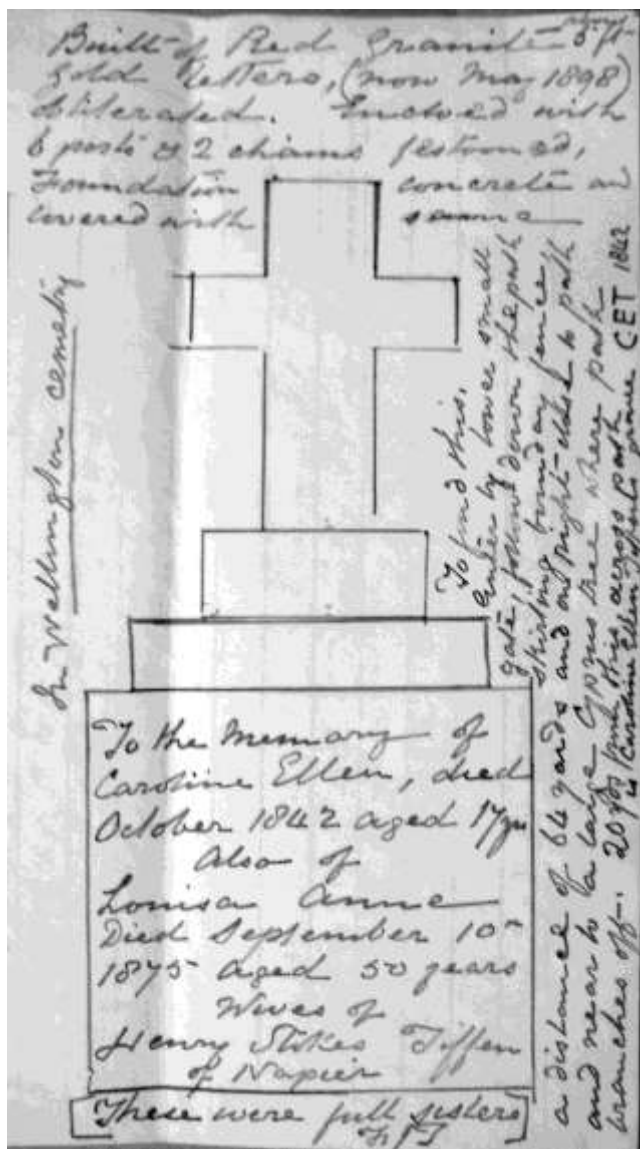 Built of Red Granite 5 ft
Gold Letters, (now May 1898)
obliterated. Enclosed with
6 posts & 2 chains festooned,
Foundation concrete an
covered with same
In Wellington cemetry
To find this,
Enter by lower small
gate, follow down the path
skirting boundary fence
a distance of 64 yards and on right-close to path
and near to a large Cyprus tree where path
branches off. 20 yds from this across path
is Caroline Ellen's grave CET 1842
To the Memory of
Caroline Ellen, died
October 1842 aged 17 yrs
Also of
Louisa Anne
Died September 10th
1875 aged 50 years
Wives of
Henry Stokes Tiffen
of Napier
[These were full sisters]